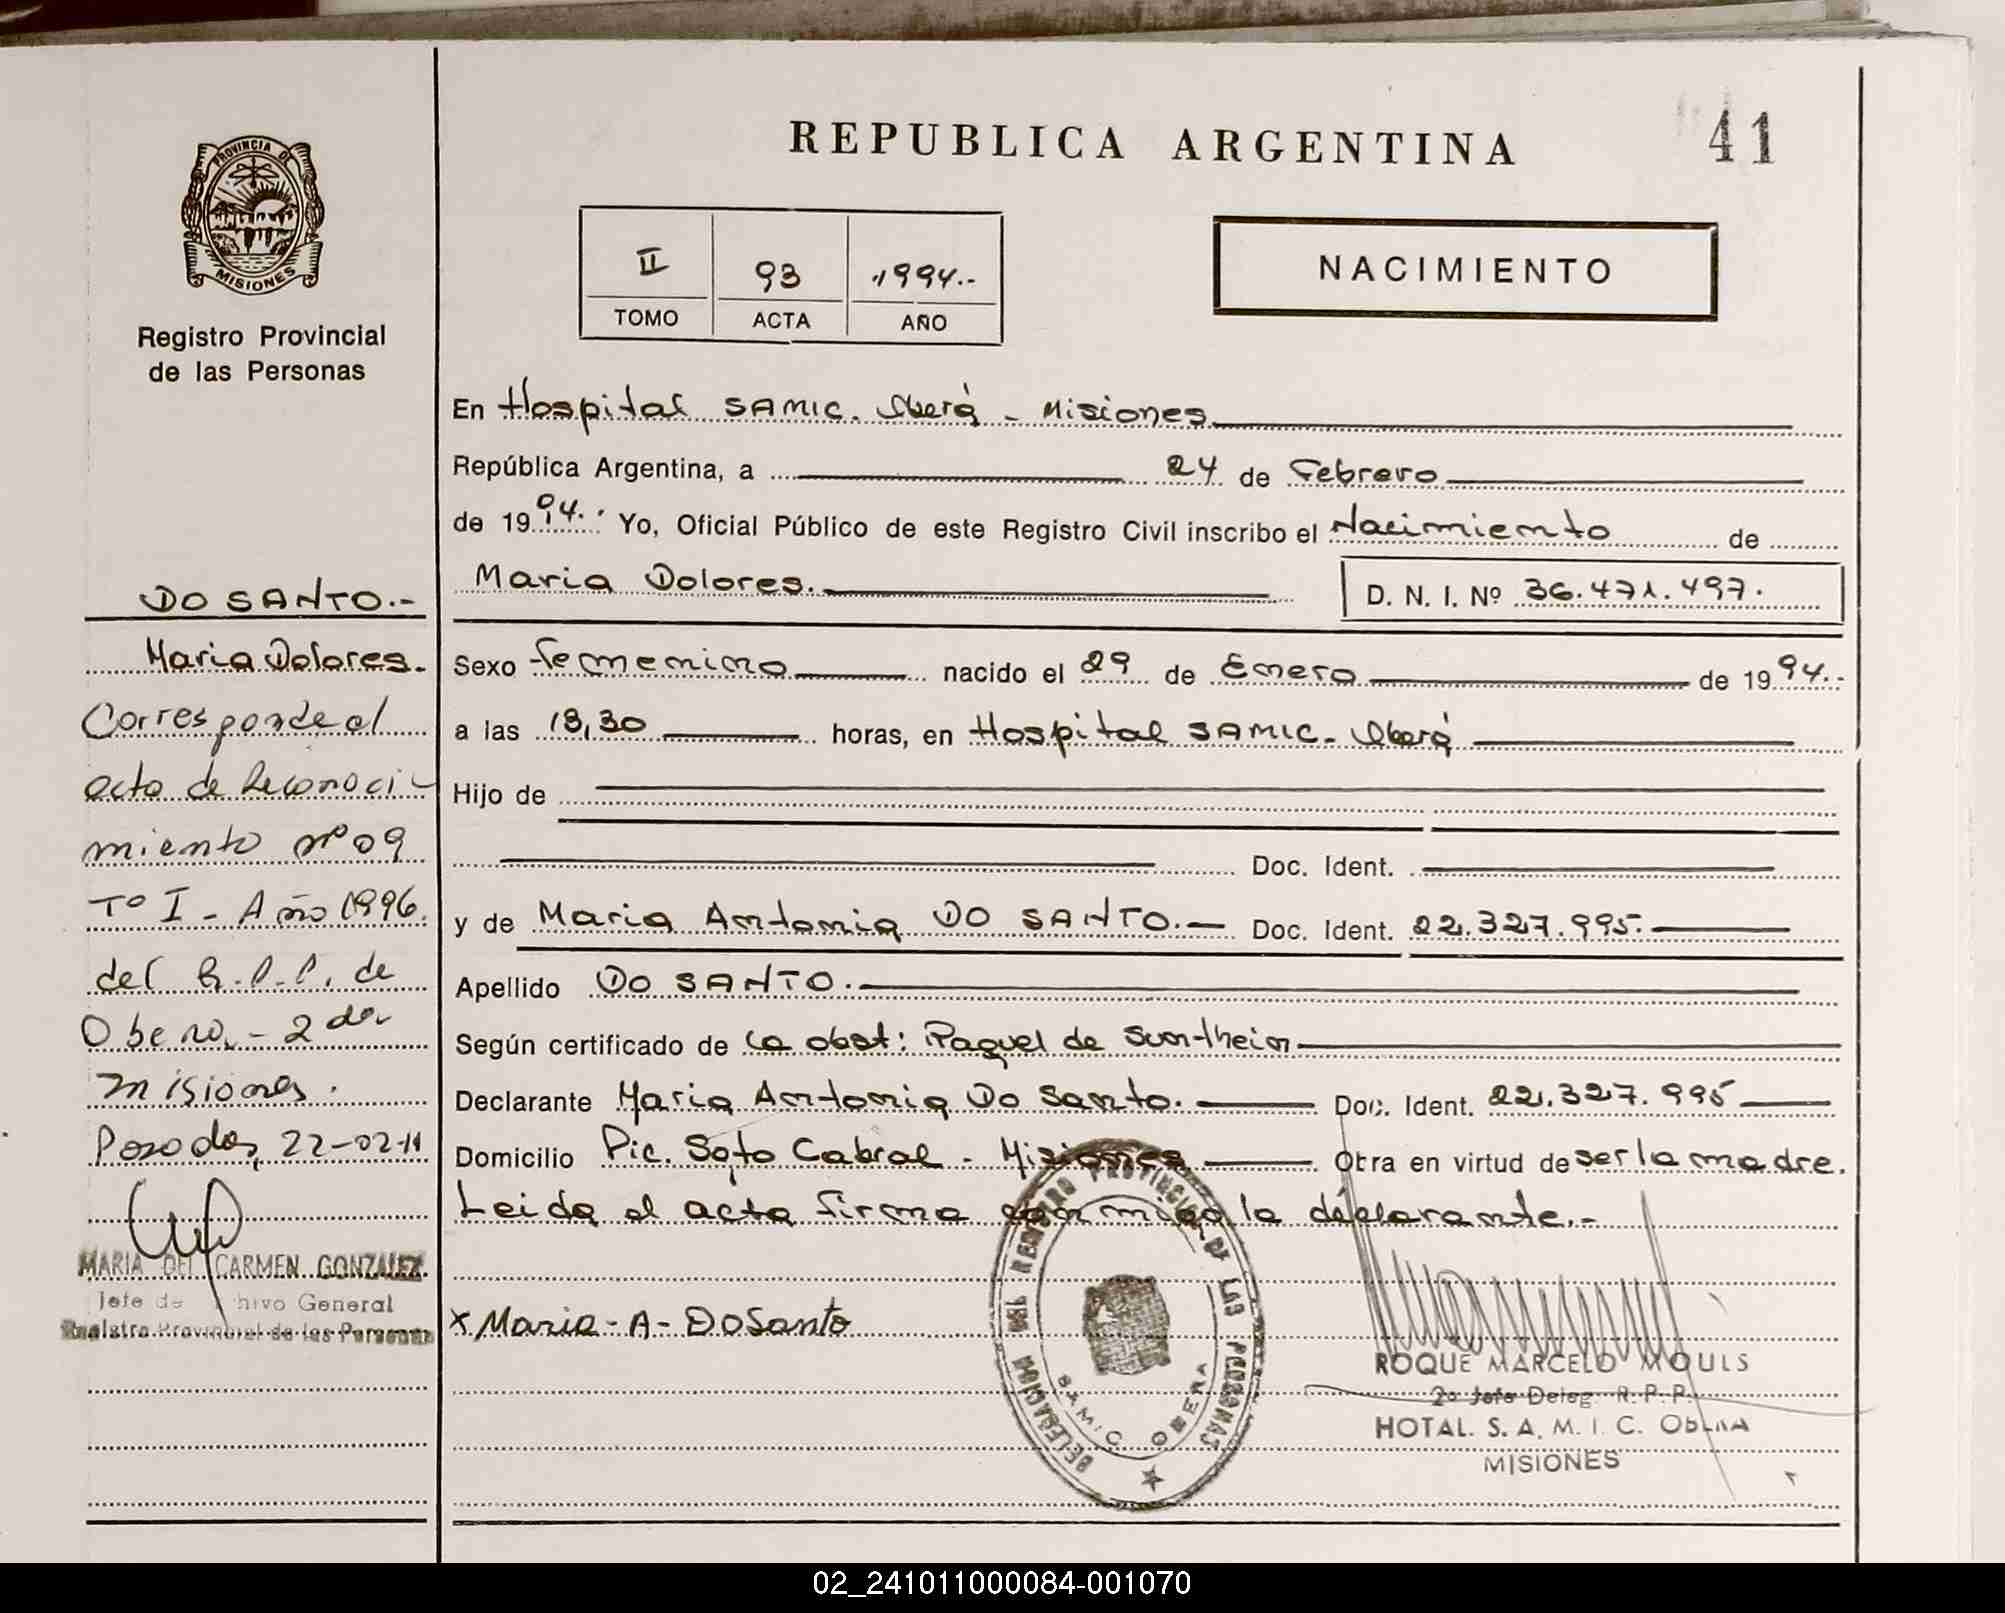 REPUBLICA ARGENTINA
41
PROVINCIA DE
MISIONES
Registro Provincial
de las Personas
II 93 1994.-
TOMO ACTA AÑO
NACIMIENTO
En Hospital SAMIC. Oberá - Misiones
República Argentina, a 24 de Febrero
de 1994. Yo, Oficial Público de este Registro Civil inscribo el Nacimiento de
Maria Dolores. D. N. I. Nº 36.471.497.
Sexo femenino nacido el 29 de Enero de 1994.-
a las 18,30 horas, en Hospital SAMIC. Oberá
Hijo de
Doc. Ident.
y de Maria Antonia DO SANTO.- Doc. Ident. 22.327.995.
Apellido DO SANTO.
Según certificado de la obst: Raquel de
Declarante Maria Antonia Do Santo. Doc. Ident. 22.327.995
Domicilio Pic. Soto Cabral - Misiones Obra en virtud de ser la madre.
Leida el acta firma conmigo la declarante.-
x Maria - A - Do Santo
DELEGACION DEL REGISTRO PROVINCIAL DE LAS PERSONAS
S.A.M.I.C. OBERA
ROQUE MARCELO MOULS
2º Jefe Deleg. R. P. P.
HOTAL. S. A. M. I. C. Obera
MISIONES
DO SANTO.-
Maria Dolores.
Corresponde al
acta de Reconoci-
miento nº 09
Tº I - Año 1996.
del R.P.P. de
Obera - 2da
misiones.
Posadas, 22-02-11
MARIA DEL CARMEN GONZALEZ
Jefe de Archivo General
Registro Provincial de las Personas
02_241011000084-001070